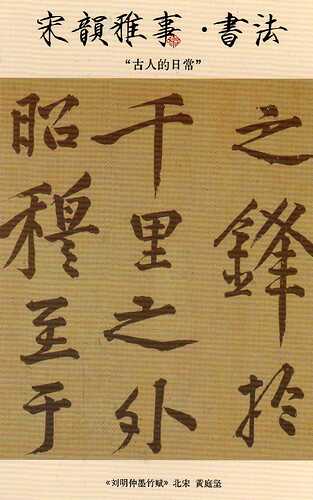 宋韻雅事·書法
“古人的日常”
之鋒於
千里之外
昭穆至于
《刘明仲墨竹赋》 北宋 黄庭坚